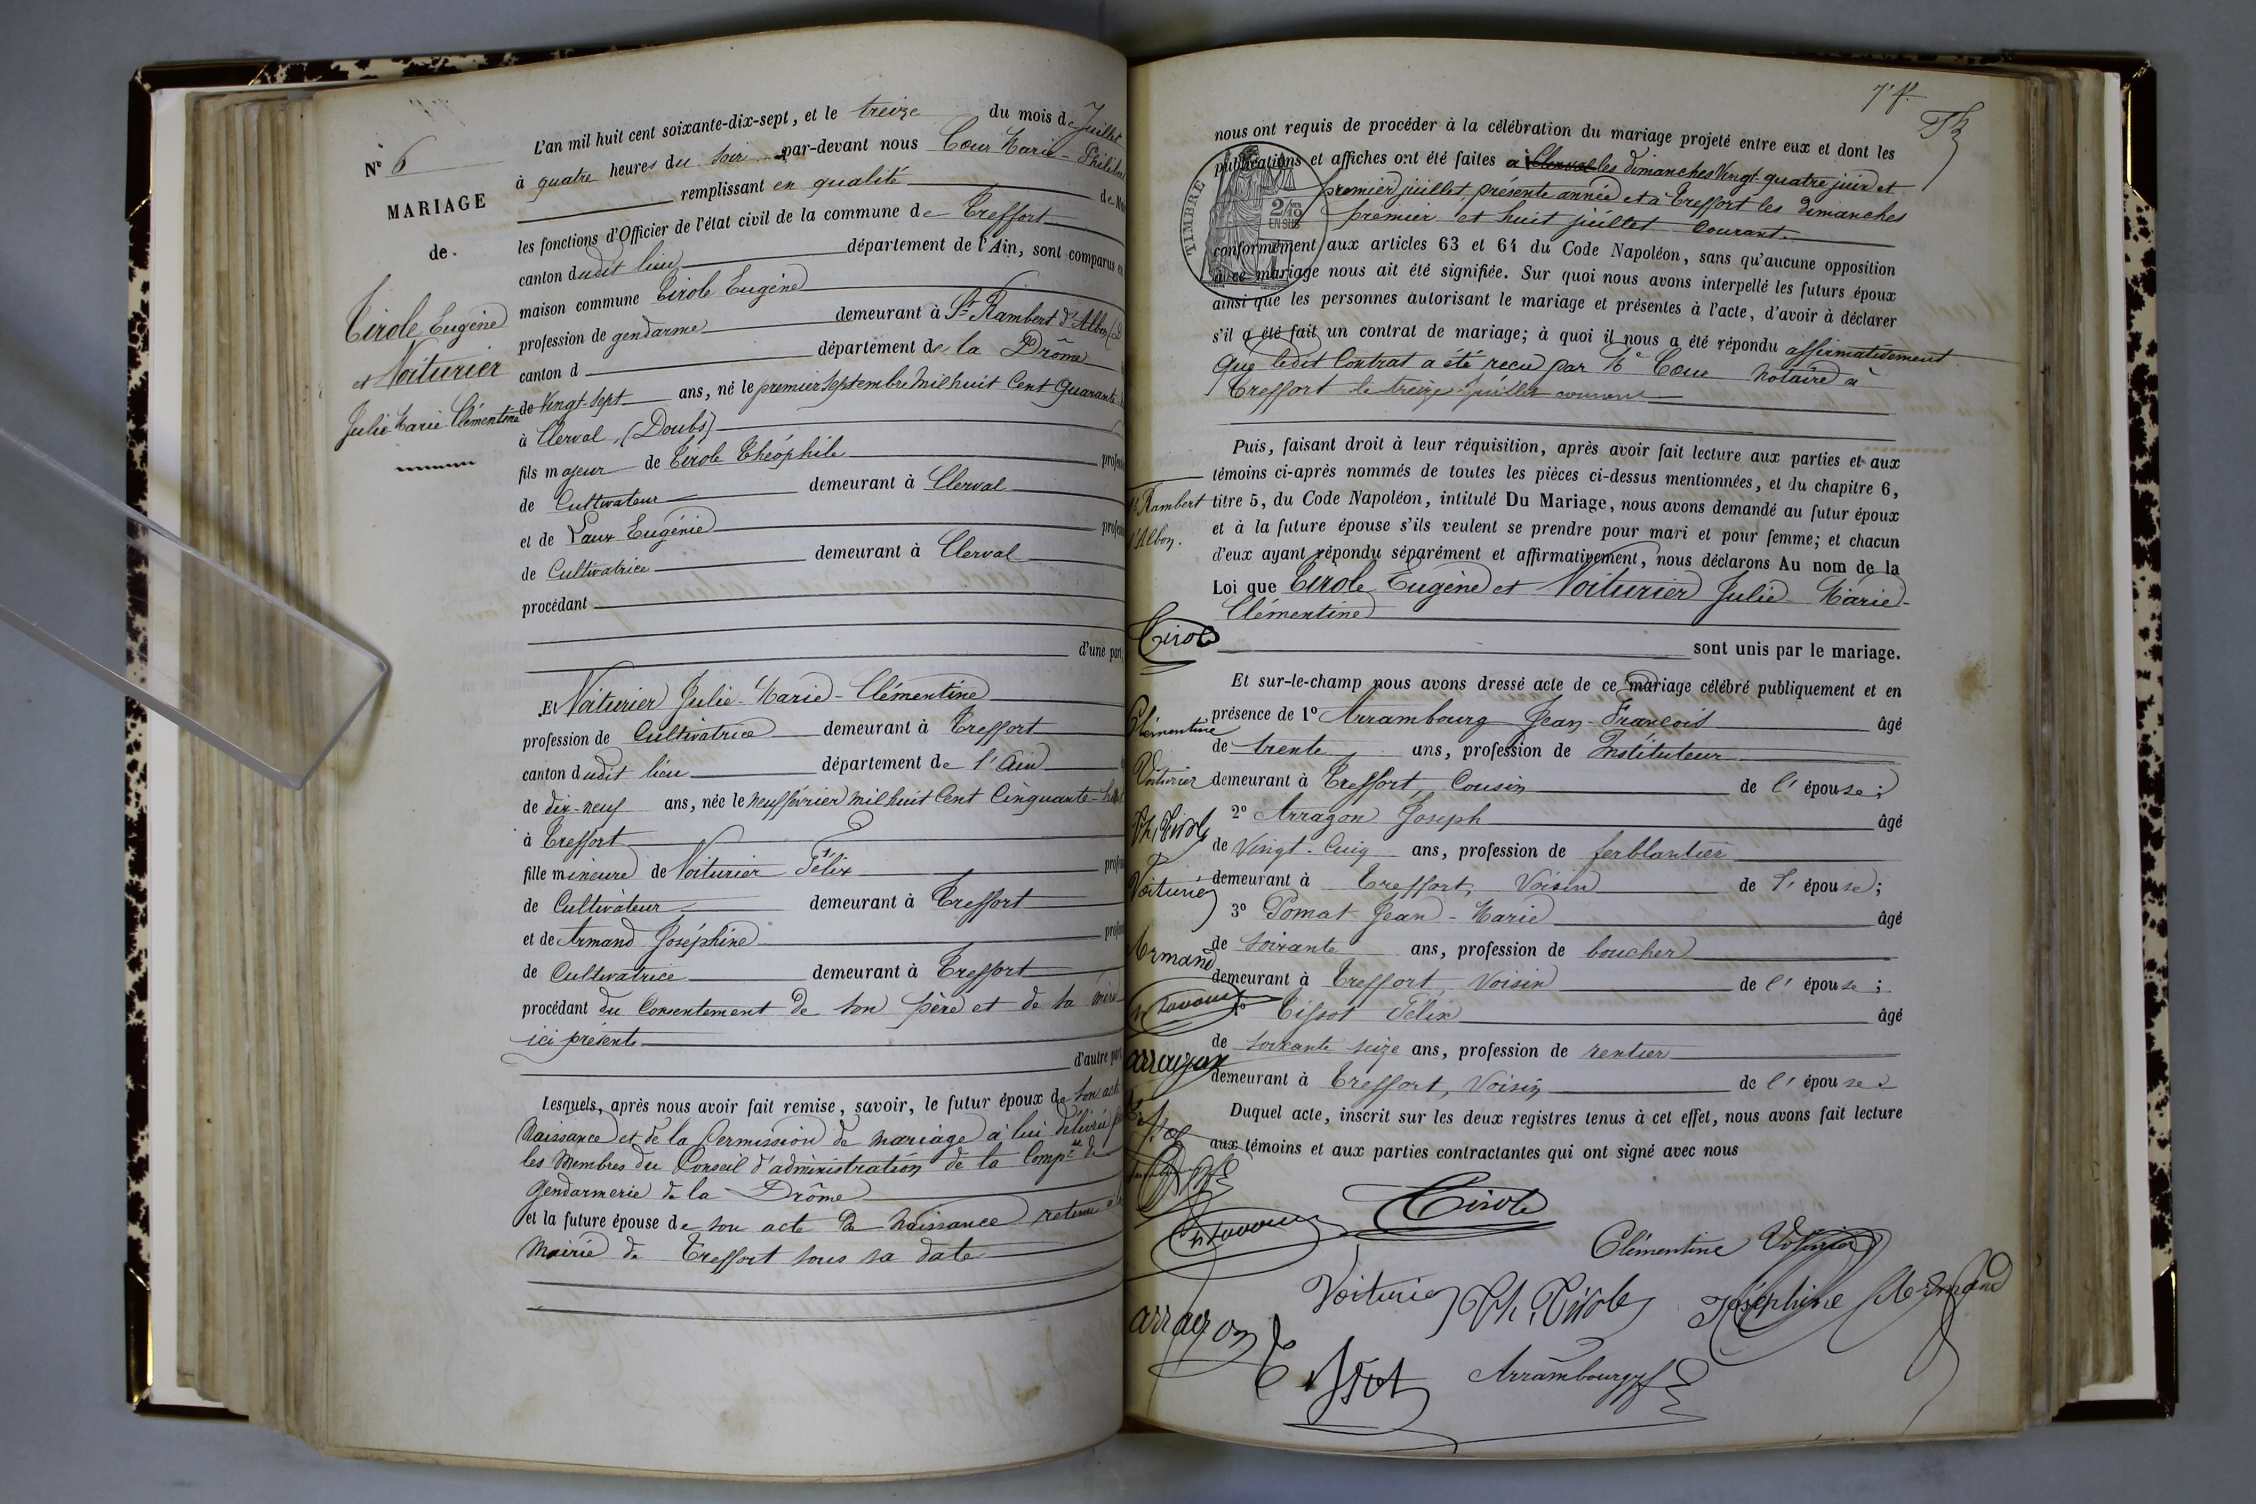 N° 6
MARIAGE
de
Cirole Eugène
et Voiturier
Julie Marie Clémentine
L'an mil huit cent soixante-dix-sept, et le treize du mois de Juillet
à quatre heures du soir par-devant nous Cœur Marie-Philibert
remplissant en qualité de
les fonctions d'Officier de l'état civil de la commune de Treffort
canton dudit lieu département de l'Ain, sont comparus en
maison commune Cirole Eugène
profession de gendarme demeurant à St Rambert d'Albon
canton d département de la Drôme
de Vingt-sept ans, né le premier Septembre Mil huit Cent Quarante
à Clerval (Doubs)
fils majeur de Cirole Théophile
de Cultivateur demeurant à Clerval
et de Laux Eugénie
de Cultivatrice demeurant à Clerval
procédant
d'une part,
Et Voiturier Julie-Marie-Clémentine
profession de Cultivatrice demeurant à Treffort
canton dudit lieu département de l'Ain
de dix-neuf ans, née le neuf février mil huit Cent Cinquante-huit
à Treffort
fille mineure de Voiturier Félix
de Cultivateur demeurant à Treffort
et de Armand Joséphine
de Cultivatrice demeurant à Treffort
procédant du Consentement de son père et de sa mère
ici présents
d'autre part
Lesquels, après nous avoir fait remise, savoir, le futur époux de son acte
Naissance et de la Permission de mariage à lui délivrée par
les Membres du Conseil d'administration de la Compie de
Gendarmerie de la Drôme
et la future épouse de son acte de Naissance retenu à la
Mairie de Treffort sous sa date
nous ont requis de procéder à la célébration du mariage projeté entre eux et dont les
publications et affiches ont été faites à Clerval les dimanches Vingt quatre juin et
premier juillet présente année et à Treffort les dimanches
premier et huit juillet Courant.
TIMBRE
2/10 EN SUS
conformément aux articles 63 et 64 du Code Napoléon, sans qu'aucune opposition
à ce mariage nous ait été signifiée. Sur quoi nous avons interpellé les futurs époux
ainsi que les personnes autorisant le mariage et présentes à l'acte, d'avoir à déclarer
s'il a été fait un contrat de mariage; à quoi il nous a été répondu affirmativement
Que ledit Contrat a été reçu par Me Cœur Notaire à
Treffort le treize Juillet courant
Puis, faisant droit à leur réquisition, après avoir fait lecture aux parties et aux
témoins ci-après nommés de toutes les pièces ci-dessus mentionnées, et du chapitre 6,
titre 5, du Code Napoléon, intitulé Du Mariage, nous avons demandé au futur époux
et à la future épouse s'ils veulent se prendre pour mari et pour femme; et chacun
d'eux ayant répondu séparément et affirmativement, nous déclarons Au nom de la
Loi que Cirole Eugène et Voiturier Julie-Marie-
Clémentine
sont unis par le mariage.
Et sur-le-champ nous avons dressé acte de ce mariage célébré publiquement et en
présence de 1° Arrambourg Jean-François âgé
de trente ans, profession de Instituteur
demeurant à Treffort, Cousin de l'épouse;
2° Arragon Joseph âgé
de Vingt-Cinq ans, profession de ferblantier
demeurant à Treffort, Voisin de l'épouse;
3° Pomat Jean-Marie âgé
de soixante ans, profession de boucher
demeurant à Treffort, Voisin de l'épouse;
4° Tissot Félix âgé
de soixante seize ans, profession de rentier
demeurant à Treffort, Voisin de l'épouse
Duquel acte, inscrit sur les deux registres tenus à cet effet, nous avons fait lecture
aux témoins et aux parties contractantes qui ont signé avec nous
Rambert
d'Albon.
Cirole
Clémentine
Voiturier
Th. Cirole
Voiturier
Armand
arragon
Cirole
Clémentine Voiturier
Voiturier Th. Cirole Joséphine Armand
arragon Tissot Arrambourg